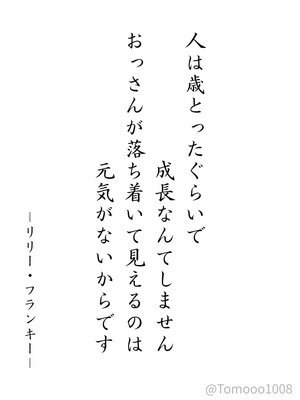 人は歳とったぐらいで
成長なんてしません
おっさんが落ち着いて見えるのは
元気がないからです
―リリー・フランキー―
@Tomooo1008